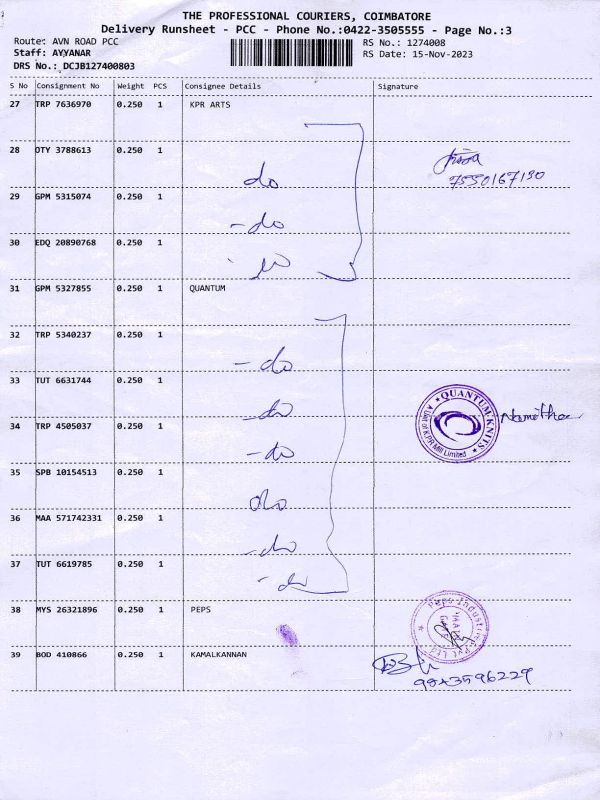 THE PROFESSIONAL COURIERS, COIMBATORE
Delivery Runsheet - PCC - Phone No.:0422-3505555 - Page No.:3
Route: AVN ROAD PCC RS No.: 1274008
Staff: AYYANAR RS Date: 15-Nov-2023
DRS No.: DCJB127400803
S No Consignment No Weight PCS Consignee Details Signature
27 TRP 7636970 0.250 1 KPR ARTS
28 OTY 3788613 0.250 1
do 7550167130
29 GPM 5315074 0.250 1
-do
30 EDQ 20890768 0.250 1
31 GPM 5327855 0.250 1 QUANTUM
32 TRP 5340237 0.250 1
-do
33 TUT 6631744 0.250 1
-do QUANTUM KNITS A Unit of KPR Mill Limited Namitha
34 TRP 4505037 0.250 1
-do
35 SPB 10154513 0.250 1
do
36 MAA 571742331 0.250 1
-do
37 TUT 6619785 0.250 1
-do
38 MYS 26321896 0.250 1 PEPS
Peps Industries Pvt Ltd
39 BOD 410866 0.250 1 KAMALKANNAN